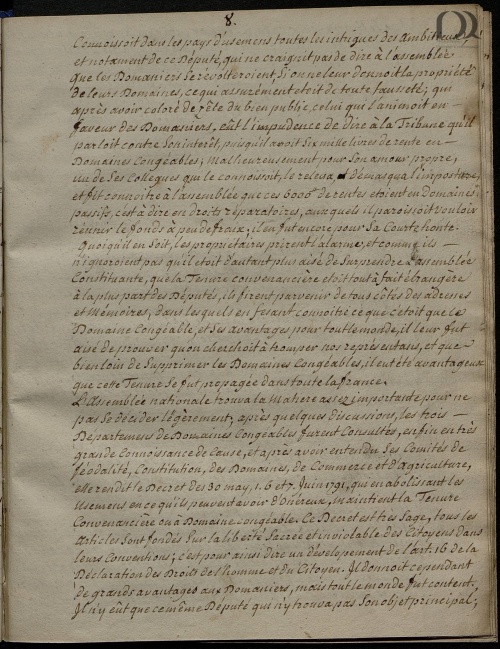 8.
Connoissoit dans les pays d'usemens toutes les intrigues des ambitieux,
et notament de ce Député, qui ne craignit pas de dire à l'assemblée
que les Domaniers se révolteroient, si on ne leur donnoit la propriété
de leurs Domaines, ce qui assurément etoit de toute fausseté; qui
après avoir coloré de zèle du bien public, celui qui l'animoit en
faveur des Domaniers, eût l'impudence de dire à la Tribune qu'il
parloit contre son interêt, puisqu'il avoit Six mille livres de rente en
Domaines Congéables; Malheureusement pour Son amour propre,
un de Ses Collègues qui le connoissoit, le releva, Démasqua l'imposture,
et fit connoître à l'assemblée que ces 6000# de rentes etoient en domaines
passifs, c'est à dire en droits réparatoires, auxquels il paroissoit vouloir
réunir le fonds à peu de fraix; il en fut encore pour Sa Courte honte.
Quoiqu'il en Soit, les propriétaires prirent l'alarme, et comme ils
n'ignoroient pas qu'il etoit d'autant plus aisé de Surprendre l'assemblée
Constituante, que la Tenure convenancière etoit tout à fait étrangère
à la plus part des Députés, ils firent parvenir de tous côtés des adresses
et Mémoires, dans lesquels en fesant connoitre ce que c'etoit que le
Domaine Congéable, et Ses avantages pour tout le monde, il leur fut
aisé de prouver qu'on cherchoit à tromper nos représentans, et que
bien loin de Supprimer les Domaines Congéables, il eut été avantageux
que cette Tenure Se fut propagée dans toute la france.
L'Assemblée nationale trouva la Matiere assez importante pour ne
pas Se décider légèrement; après quelques discussions, les trois
Départemens de Domaines Congéables furent Consultés, enfin en très
grande Connoissance de Cause, et après avoir entendu Ses Comités de
féodalité, Constitution, des Domaines, de Commerce et d'agriculture,
elle rendit le Decret des 30 may, 1. 6 et 7. Juin 1791, qui en abolissant les
Usemens en ce qu'ils peuvent avoir d'onéreux, Maintient la Tenure
Convenancière ou à Domaine Congéable. Ce Decret est très Sage, tous les
articles Sont fondés Sur la liberté Sacrée et inviolable des Citoyens dans
leurs Conventions; c'est pour ainsi dire un dévelopement de l'art. 16 de la
Déclaration des Droits de l'homme et du Citoyen. Il donnoit cependant
de grands avantages aux Domaniers, mais tout le monde fut content.
Il n'y eût que ce même Député qui n'y trouva pas Son objet principal;